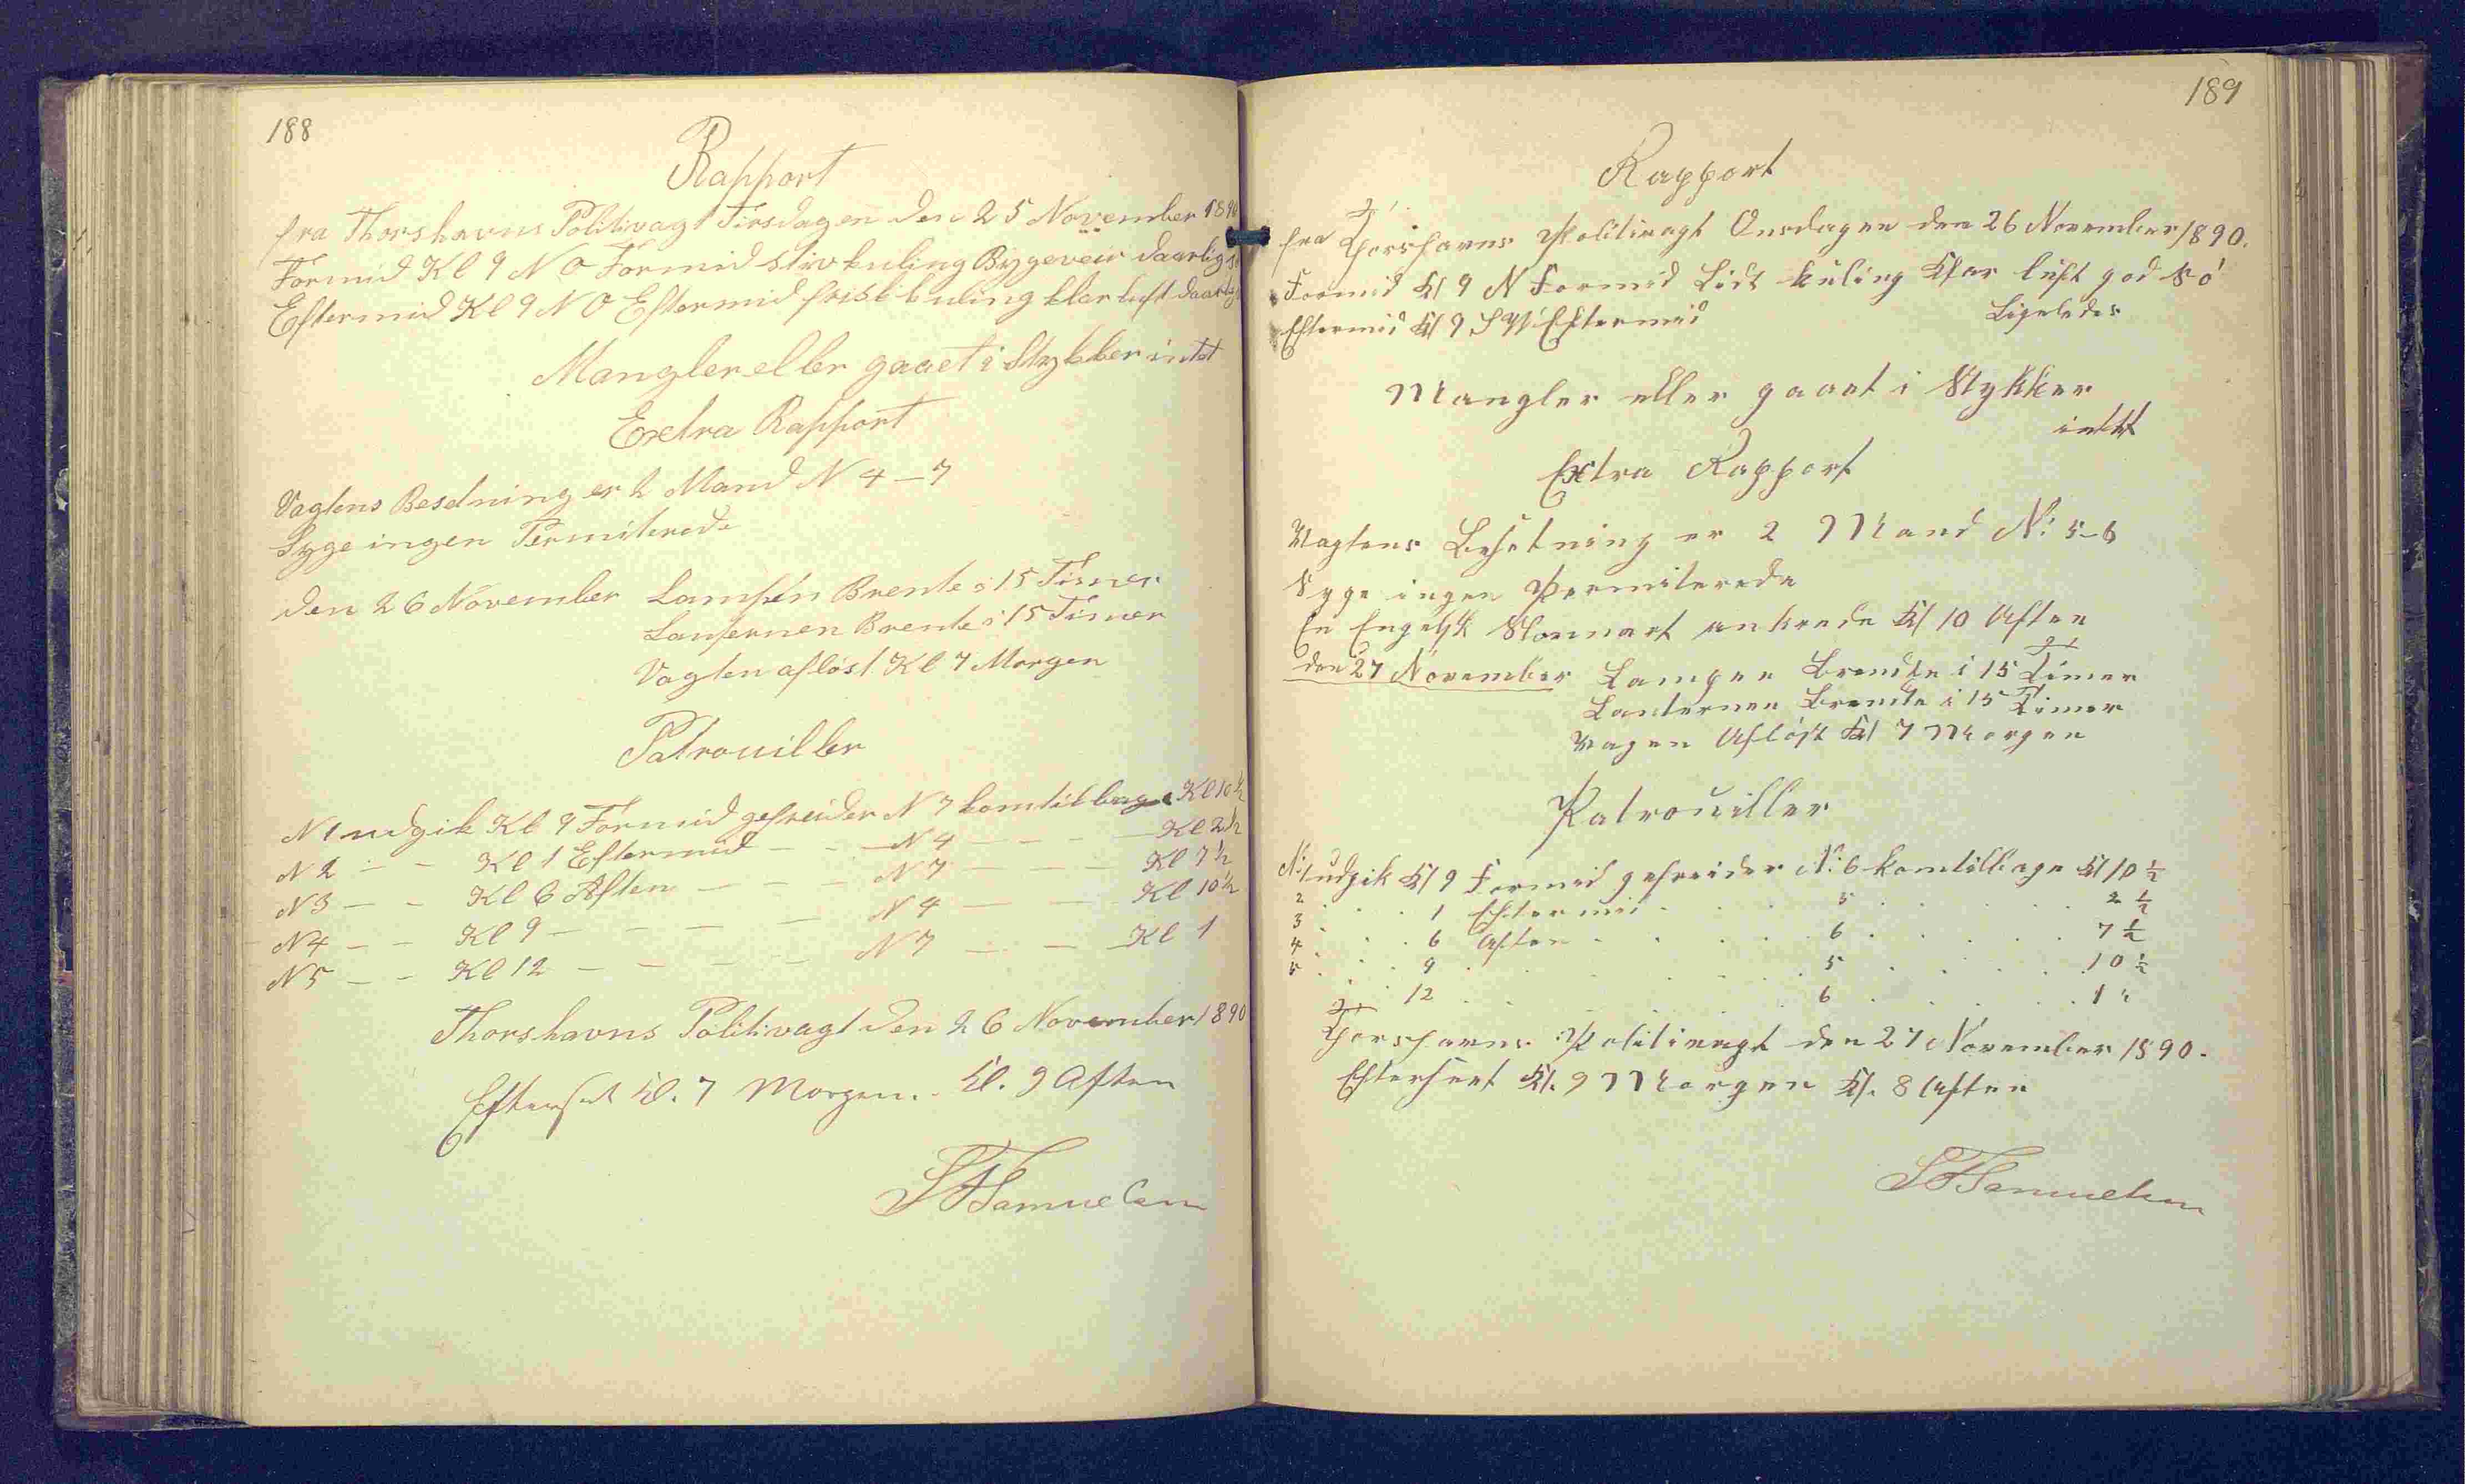 188
Rapport
fra Thorshavns Politivagt Tirsdagen den 25 November 1890
Formid Kl 9 N O Formid stiv kuling Bygeveir daarlig
Eftermid Kl 9 N O Eftermid frisk kuling klar luft daarlig
Mangler eller gaaet i Stykker intet
Extra Rapport
Vagtens Besetning er 2 Mand N 4 – 7
Syge ingen Permiterede
den 26 November Lampen Brente i 15 Timer
Lanternen Brente i 15 Timer
Vagten afløst Kl 7 Morgen
Patrouiller
N 1 udgik Kl 9 Formid gefreider N 7 kom tilbage Kl 10 ½
N 2 – – Kl 1 Eftermid – – N 4 – – – Kl 2 ½
N 3 – – Kl 6 Aften – – – N 7 – – – Kl 7 ½
N 4 – – Kl 9 – – – – N 4 – – – Kl 10 ½
N 5 – – Kl 12 – – – – N 7 – – – Kl 1
Thorshavns Politivagt den 26 November 1890
Efterset Kl. 7 Morgen. Kl. 9 Aften
SFSamuelsen
189
Rapport
fra Thorshavns Politivagt Onsdagen den 26 November 1890.
Formid Kl 9 N Formid Lidt kuling Klar luft god Sö
Eftermid Kl 9 SW Eftermid Ligeledes
Mangler eller gaaet i Stykker
intet
Extra Rapport
Vagtens Besetning er 2 Mand N: 5–6
Syge ingen Permiterede
En Engelsk Slonnart ankrede Kl 10 Aften
den 27 November Lampen Brendte i 15 Timer
Lanternen Brendte i 15 Timer
Vagen Aflöst Kl 7 Morgen
Patrouiller
N: 1 udgik Kl 9 Formid gefreider N: 6 kom tilbage Kl 10 ½
2 . . . 1 Eftermid . . . 5 . . . . . 2 ½
3 . . . 6 Aften . . . . 6 . . . . . 7 ½
4 . . . 9 . . . . . 5 . . . . . 10 ½
5 . . . 12 . . . . . 6 . . . . . 1 "
Thorshavns Politivagt den 27 November 1890.
Efterseet Kl. 9 Morgen Kl. 8 Aften
SFSamuelsen